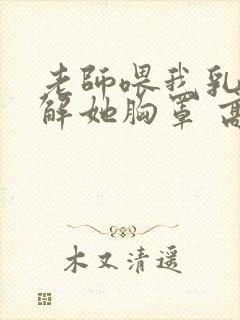 老師喂我乳
解她胸罩 高
木又清遥